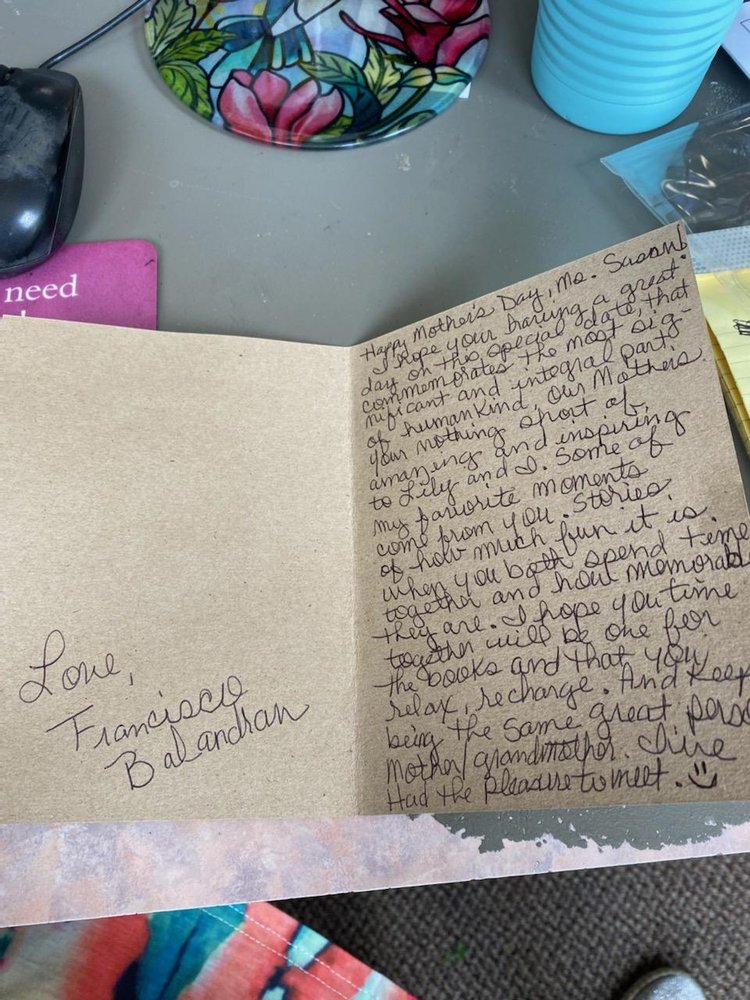 need
Love,
Francisco
Balandran
Happy Mother's Day, Ms. Susan!
I hope your having a great
day on this special date, that
commemorates the most sig-
nificant and integral part
of humankind, our Mothers.
your nothing short of
amazing and inspiring
to Lily and I. Some of
my favorite moments
come from you. Stories
of how much fun it is
when you both spend time
together and how memorabl
they are. I hope you time
together will be one for
the books and that you
relax, recharge. And keep
being the same great perso
Mother/grandmother. I've
Had the pleasure to meet.